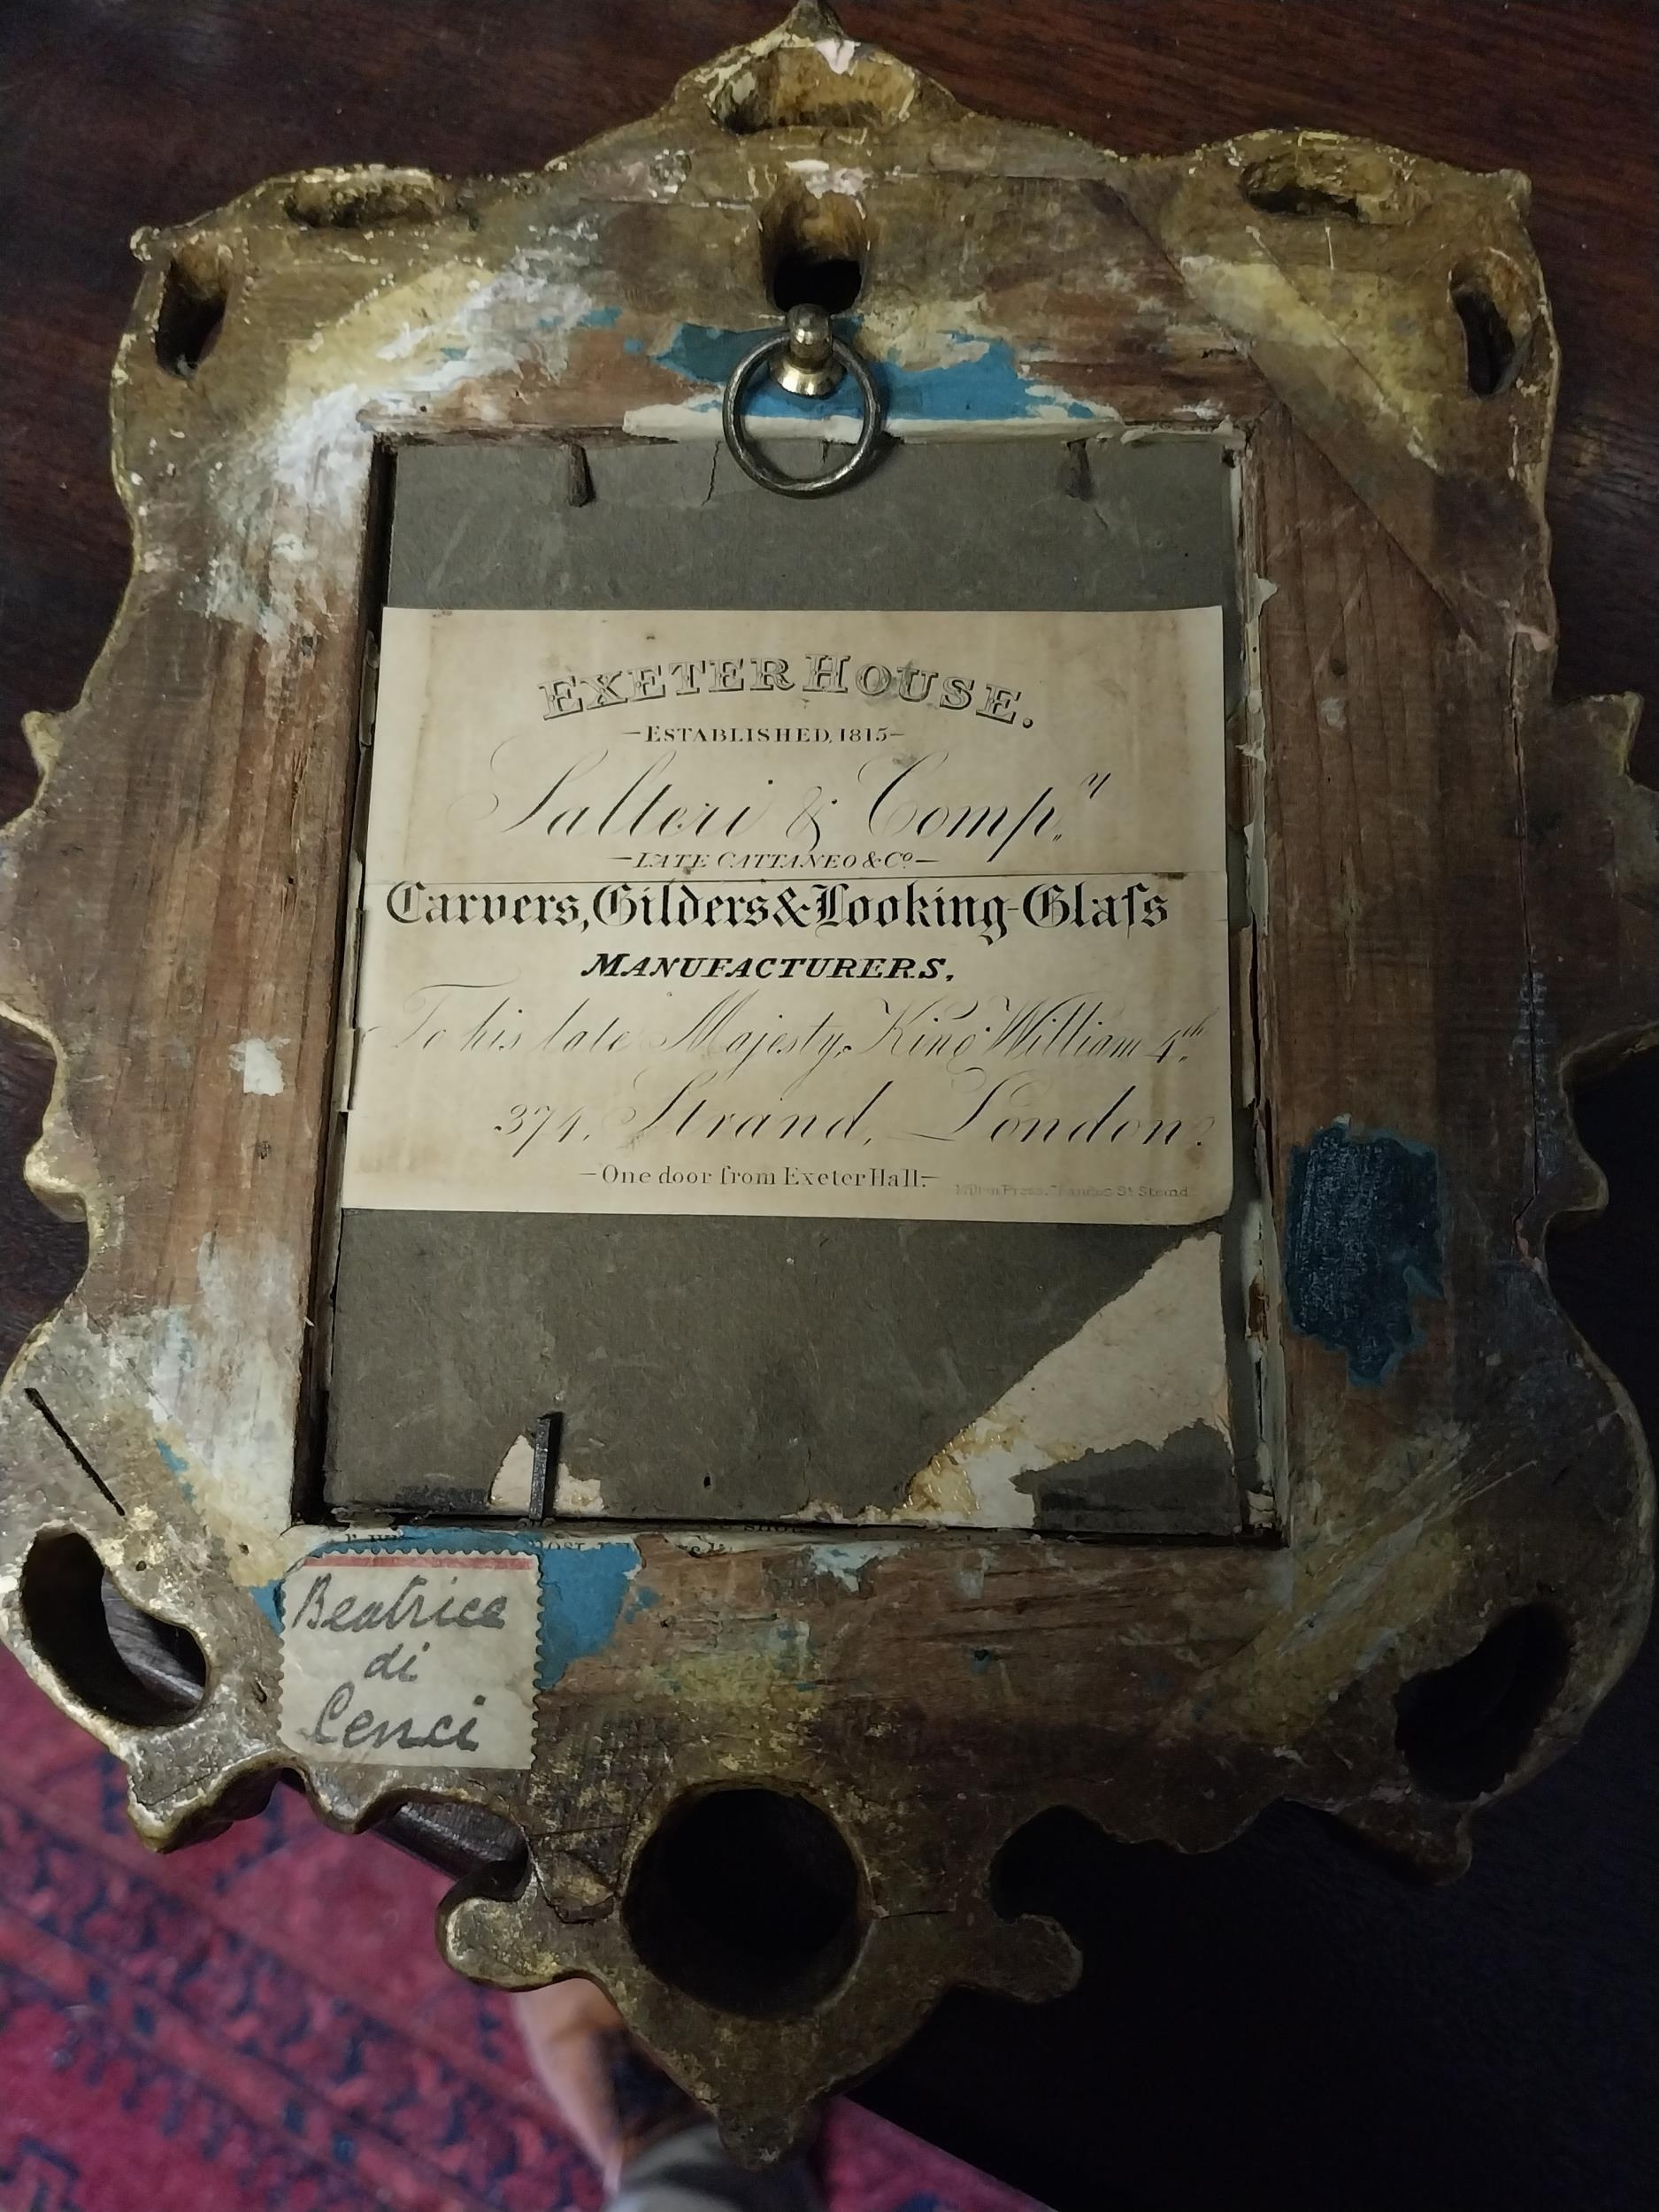 EXETER HOUSE.
—ESTABLISHED, 1815—
Salteri & Comp.y
—LATE CATTANEO & Co.—
Carvers, Gilders & Looking-Glaſs
MANUFACTURERS,
To his late Majesty, King William 4th.
374, Strand, London.
—One door from Exeter Hall.—
Press, St Strand
Beatrice
di
Cenci